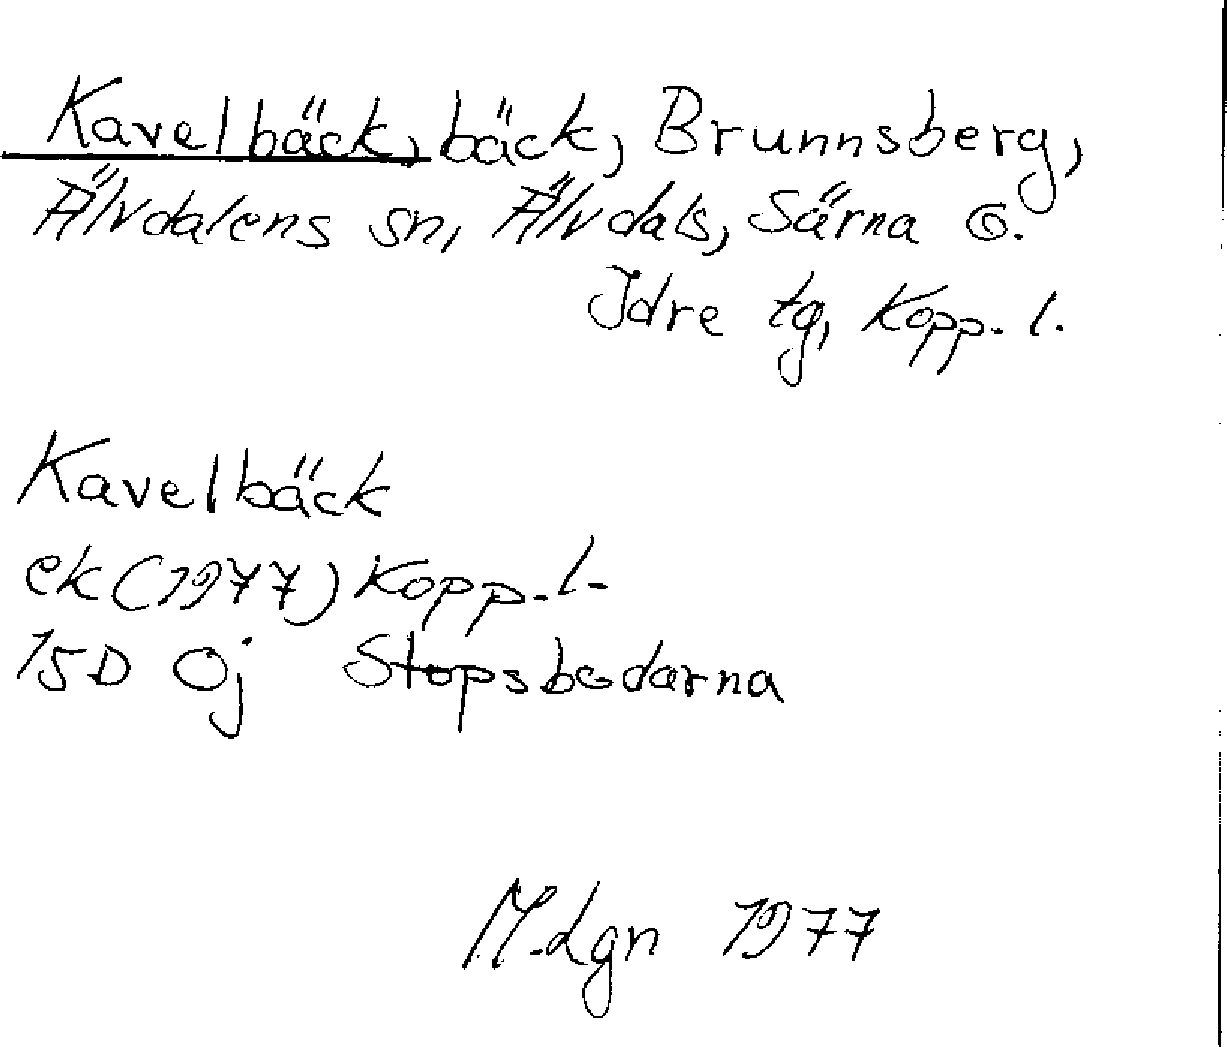 Kavelbäck, bäck, Brunnsberg,
Älvdalens sn, Älvdals, Särna o.
Idre tg, Kopp. l.
Kavelbäck
ek (1977) Kopp. l.
15D 0j Stopsbodarna
M. Lgn 1977